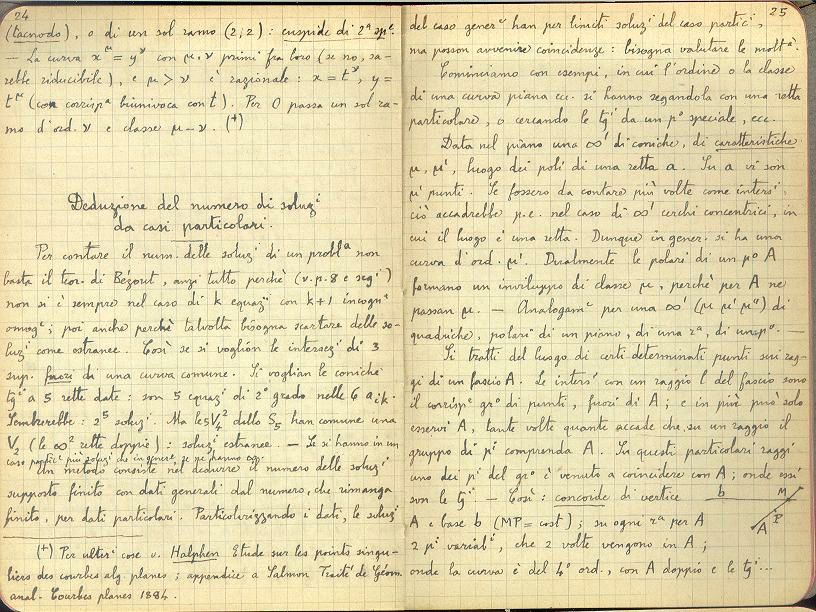 24
(tacnodo), o di un sol ramo (2,2): cuspide di 2ª spᵉ.
— La curva x^μ = y^ν con μ, ν primi fra loro (se no, sa-
rebbe riducibile), e μ > ν è razionale: x = t^ν, y =
t^μ (con corrispª biunivoca con t). Per O passa un sol ra-
mo d'ord. ν e classe μ-ν. (+)
Deduzione del numero di soluzⁱ
da casi particolari.
Per contare il num. delle soluzⁱ di un problª non
basta il teor. di Bézout, anzi tutto perchè (v. p. 8 e segⁱ)
non si è sempre nel caso di k equazⁱ con k+1 incognᵉ
omogᵉ; poi anche perchè talvolta bisogna scartare delle so-
luzⁱ come estranee. Così se si voglion le intersezⁱ di 3
sup. fuori di una curva comune. Si voglian le coniche
tgⁱ a 5 rette date: son 5 equazⁱ di 2º grado nelle 6 a_ik.
Sembrerebbe: 2⁵ soluzⁱ. Ma le 5 V₄² dello S₅ han comune una
V₂ (le ∞² rette doppie): soluzⁱ estranee. — Se si hanno in un
caso particᵉ più soluzⁱ che in genere, se ne hanno ∞.
Un metodo consiste nel dedurre il numero delle soluzⁱ
supposto finito con dati generali dal numero, che rimanga
finito, per dati particolari. Particolarizzando i dati, le soluzⁱ
(+) Per ulterⁱ cose v. Halphen Etude sur les points singu-
liers des courbes alg. planes; appendice a Salmon Traité de Géom.
anal. Courbes planes 1884.
25
del caso generᵉ han per limiti soluzⁱ del caso particᵉ,
ma posson avvenire coincidenze: bisogna valutare le moltᵃ.
Cominciamo con esempi, in cui l'ordine o la classe
di una curva piana ecc. si hanno segandola con una retta
particolare, o cercando le tgⁱ da un pº speciale, ecc.
Data nel piano una ∞¹ di coniche, di caratteristiche
μ, μ', luogo dei poli di una retta a. Su a vi son
μ' punti. Se fossero da contare più volte come intersⁱ,
ciò accadrebbe p.e. nel caso di ∞¹ cerchi concentrici, in
cui il luogo è una retta. Dunque in gener. si ha una
curva d'ord. μ'. Dualmente le polari di un pº A
formano un inviluppo di classe μ, perchè per A ne
passan μ. — Analogamᵉ per una ∞¹ (μ μ' μ") di
quadriche, polari di un piano, di una rª, di un pº. —
Si tratti del luogo di certi determinati punti sui rag-
gi di un fascio A. Le intersⁱ con un raggio l del fascio sono
il corrispᵉ grº di punti, fuori di A; e in più può solo
esservi A, tante volte quante accade che, su un raggio il
gruppo di pⁱ comprenda A. Su questi particolari raggi
uno dei pⁱ del grº è venuto a coincidere con A; onde essi
son le tgⁱ. — Così: concoide di vertice
A e base b (MP = cost); su ogni rª per A
2 pⁱ variabⁱ, che 2 volte vengono in A;
onde la curva è del 4º ord., con A doppio e le tgⁱ...
b
M
P
A